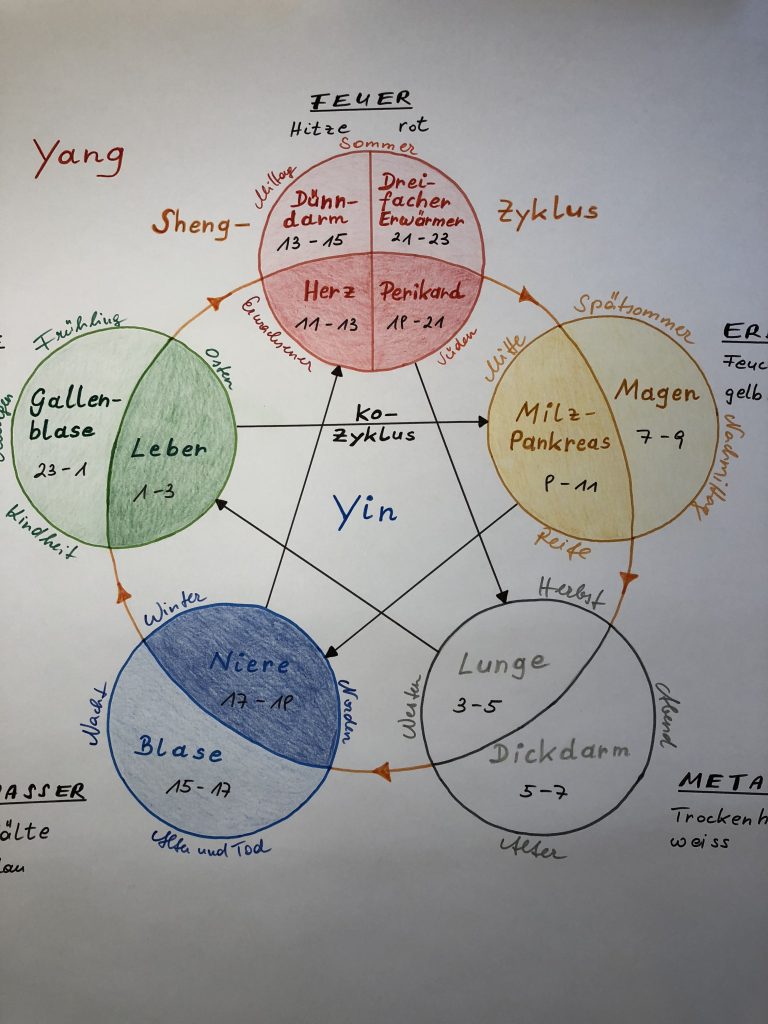 FEUER
Hitze rot
Sommer
Yang
Mittag
Dünn-
darm
13 - 15
Drei-
facher
Erwärmer
21 - 23
Sheng-
Zyklus
Herz
11 - 13
Perikard
19 - 21
Erwachsener
Süden
Frühling
Osten
Gallen-
blase
23 - 1
Leber
1 - 3
Kindheit
Ko-
Zyklus
Yin
Spätsommer
Mitte
Milz-
Pankreas
9 - 11
Magen
7 - 9
Nachmittag
Reife
ER
Feuc
gelb
Winter
Nacht
Niere
17 - 19
Norden
Blase
15 - 17
Alter und Tod
ASSER
älte
lau
Herbst
Westen
Lunge
3 - 5
Abend
Dickdarm
5 - 7
Alter
META
Trockenh
weiss